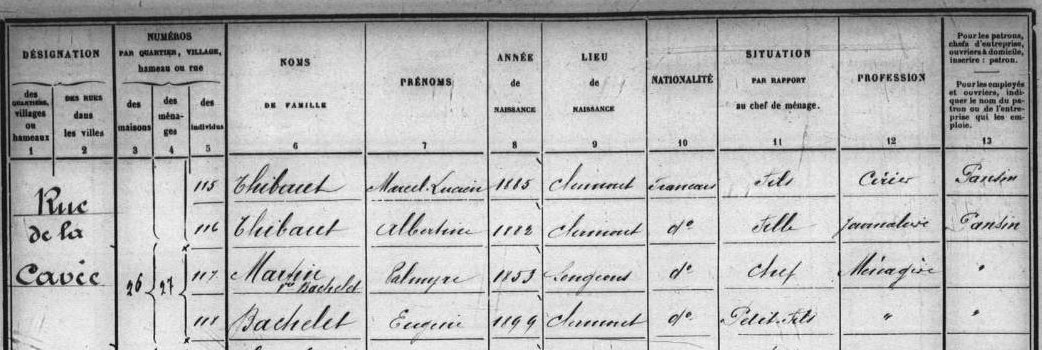 DÉSIGNATION
des QUARTIERS, villages ou hameaux
1
DES RUES dans les villes
2
NUMÉROS
PAR QUARTIER, VILLAGE,
hameau ou rue
des maisons
3
des ména-ges
4
des individus
5
NOMS
DE FAMILLE
6
PRÉNOMS
7
ANNÉE
de
NAISSANCE
8
LIEU
de
NAISSANCE
9
NATIONALITÉ
10
SITUATION
PAR RAPPORT
au chef de ménage.
11
PROFESSION
12
Pour les patrons,
chefs d'entreprise,
ouvriers à domicile,
inscrire : patron.
Pour les employés
et ouvriers, indi-
quer le nom du pa-
tron ou de l'entre-
prise qui les em-
ploie.
13
Rue
de la
Cavée
115 Thibaut Marcel Lucien 1885 Clermont Francais Fils Cirier Pansin
116 Thibaut Albertine 1882 Clermont do Fille Journalière Pansin
26 27 117 Martin Palmyre 1853 do Chef Ménagère "
Vve Bachelet
118 Bachelet Eugène 1899 Clermont do Petit-Fils " "